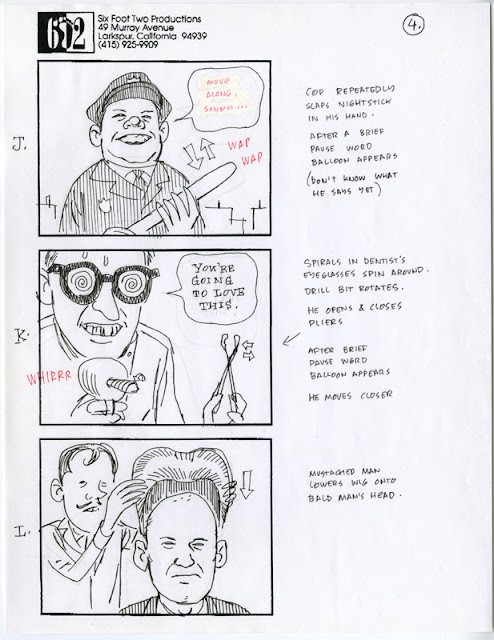 602
Six Foot Two Productions
49 Murray Avenue
Larkspur, California 94939
(415) 925-9909
4.
J.
MOVE
ALONG,
SONNY...
WAP
WAP
COP REPEATEDLY
SLAPS NIGHTSTICK
IN HIS HAND.
AFTER A BRIEF
PAUSE WORD
BALLOON APPEARS
(DON'T KNOW WHAT
HE SAYS YET)
K.
YOU'RE
GOING
TO LOVE
THIS.
WHIRRR
SPIRALS IN DENTIST'S
EYEGLASSES SPIN AROUND.
DRILL BIT ROTATES.
HE OPENS & CLOSES
PLIERS
AFTER BRIEF
PAUSE WORD
BALLOON APPEARS
HE MOVES CLOSER
L.
MUSTACHED MAN
LOWERS WIG ONTO
BALD MAN'S HEAD.